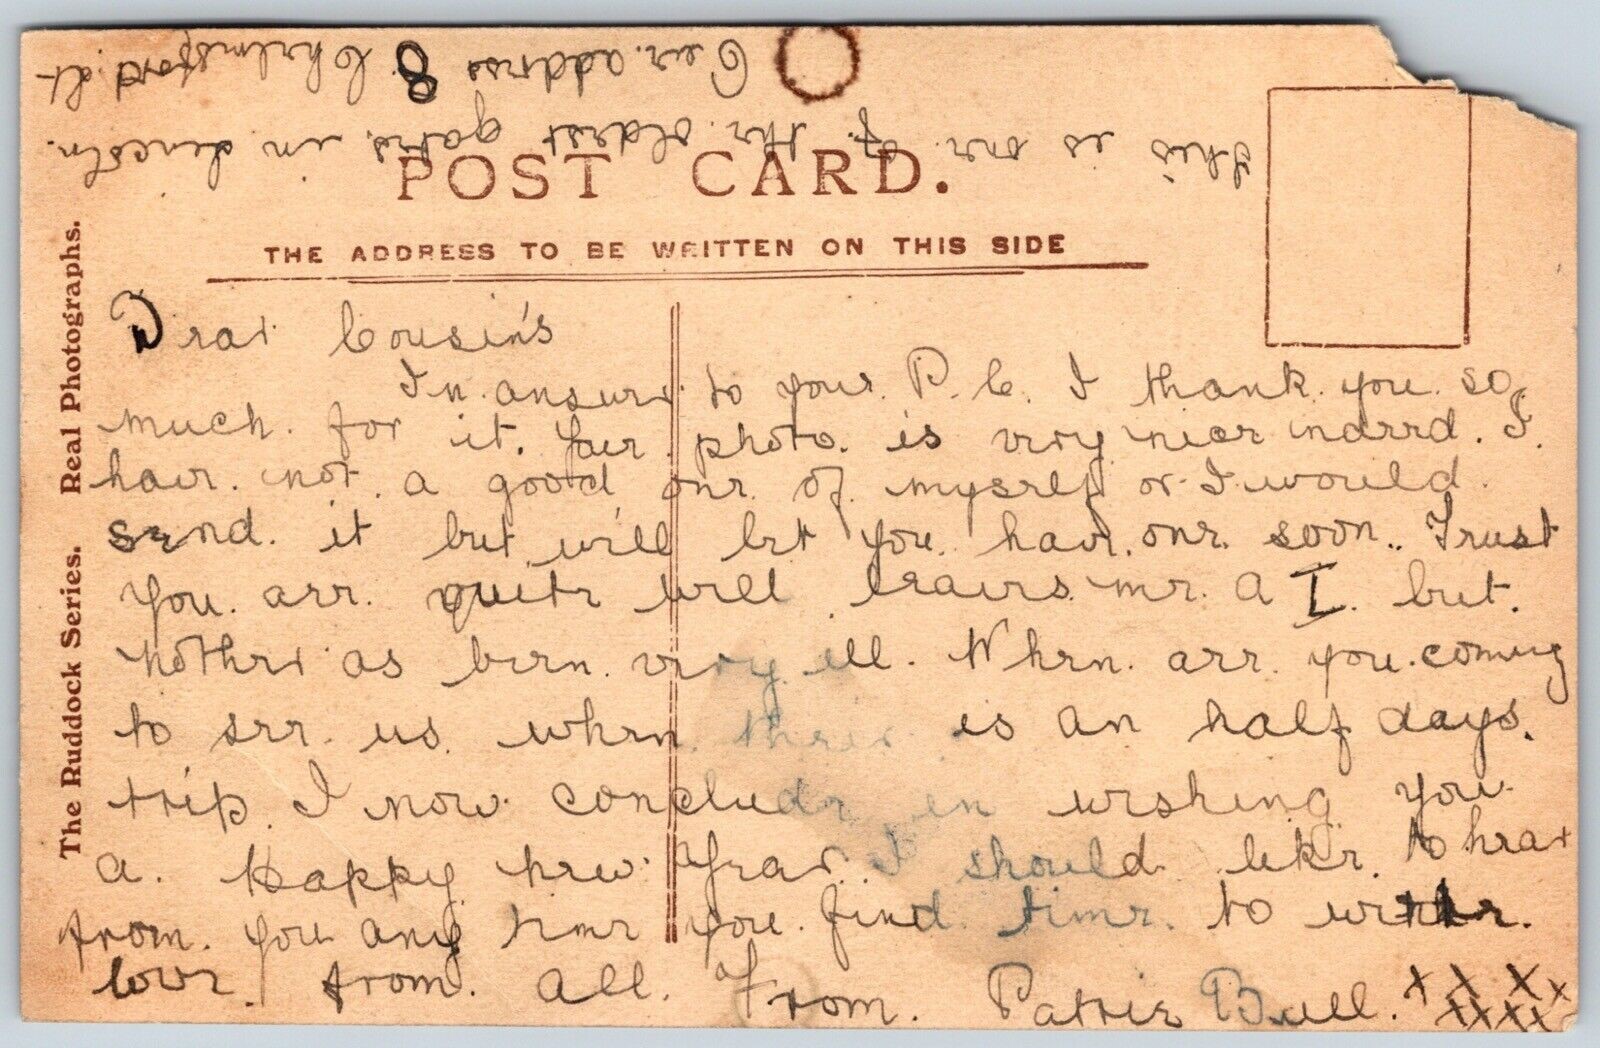 This is one of the oldest gates in Lincoln.
Our address 8 Chelmsford St
POST CARD.
THE ADDRESS TO BE WRITTEN ON THIS SIDE
The Ruddock Series. Real Photographs.
Dear Cousin's
In answer to your P.C. I thank you so
much for it. your photo is very nice indeed. I
have not a good one of myself or I would
send it but will let you have one soon.. Trust
you are quite well leaves me A I. but
Mother as been very ill. When are you coming
to see us when their is an half days
trip. I now conclude in wishing you
a Happy New Year. I should like to hear
from you any time you find time to write.
love from all. From Pattie Bull. x x x x
x x x x